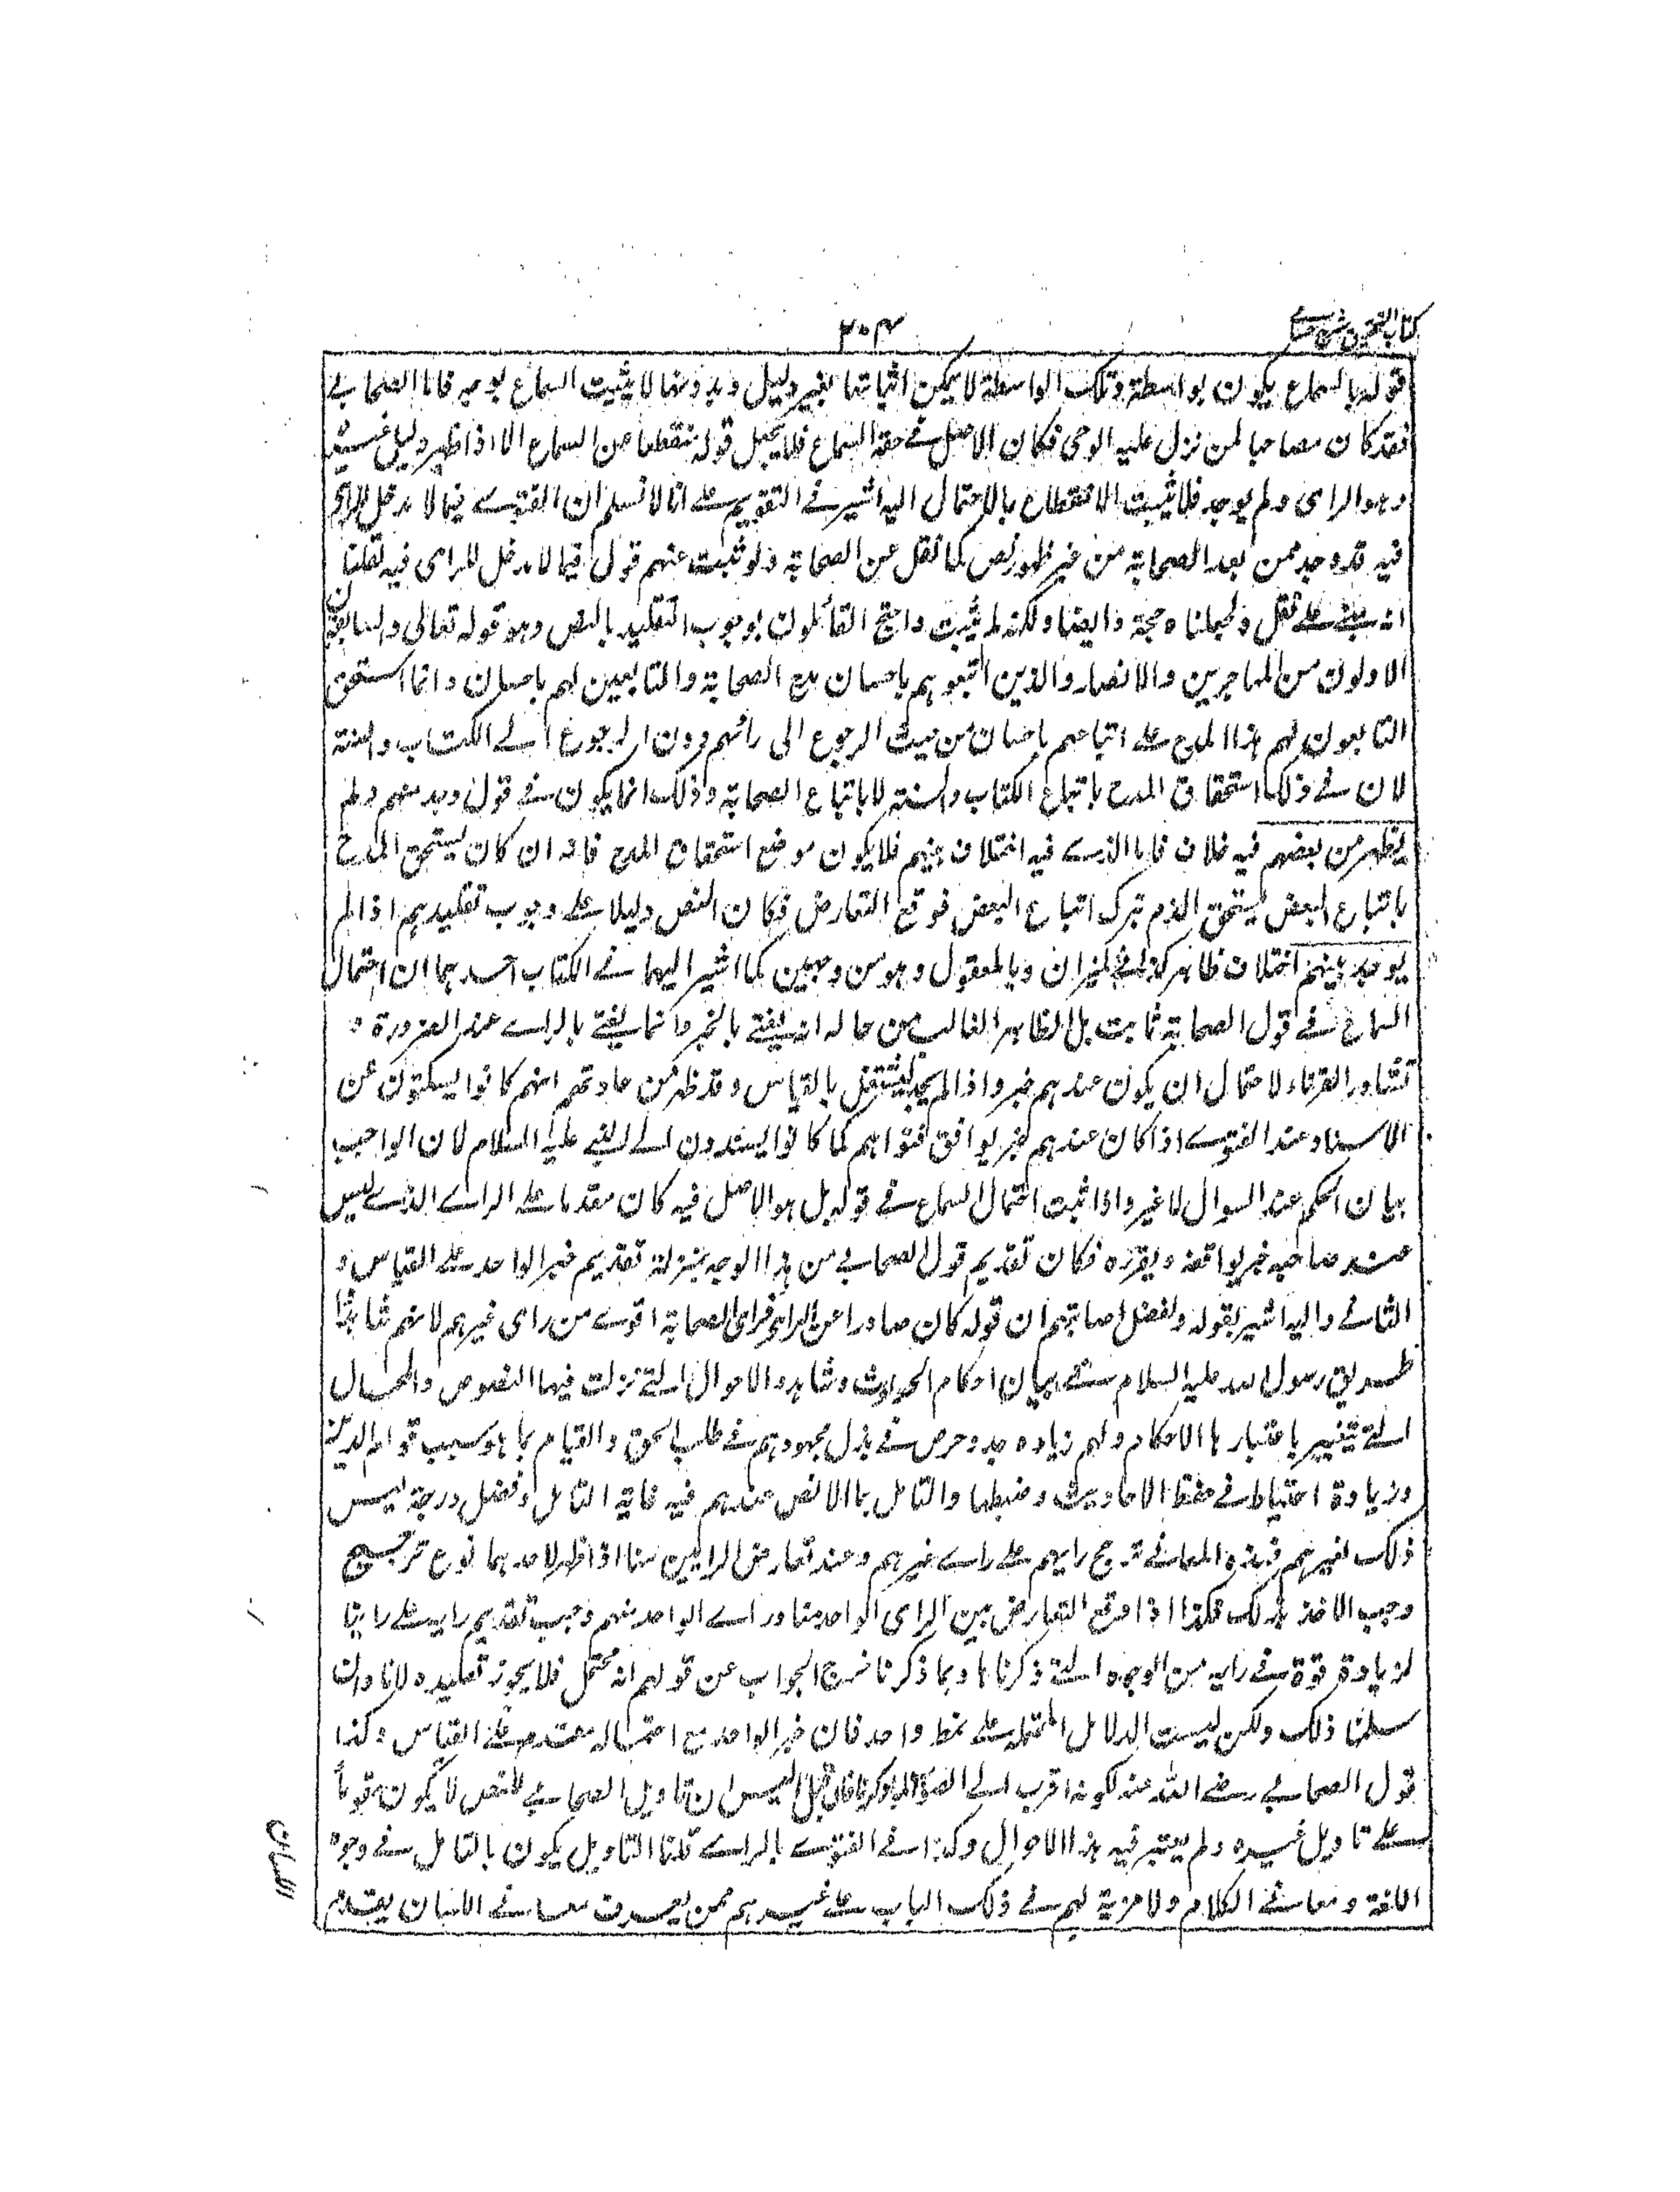 كتاب التحقيق شرح حسامى
٣٠٤
قوله بالسماع يكون بواسطة وتلك الواسطة لا يمكن اثباتها بغير دليل وبدونها لا يثبت السماع بوجه فاما الصحابى
فقد كان مصاحبا لمن نزل عليه الوحى فكان الاصل فى حقه السماع فلا يجعل قوله منقطعا عن السماع الا اذا ظهر دليل غيره
وهو الراى ولم يوجد فلا يثبت الانقطاع بالاحتمال اليه اشير فى التقويم على انا لا نسلم ان الفتوى فيما لا مدخل للراى
فيه قد وجد ممن بعد الصحابة من غير ظهور نص كما نقل عن الصحابة ولو ثبت عنهم قول فيما لا مدخل للراى فيه لقلنا
انه مبنى على نقل ولجعلناه حجة ايضا ولكنه لم يثبت واحتج القائلون بوجوب التقليد بالنص وهو قوله تعالى والسابقون
الاولون من المهاجرين والانصار والذين اتبعوهم باحسان مدح الصحابة والتابعين لهم باحسان وانما استحق
التابعون لهم هذا المدح على اتباعهم باحسان من حيث الرجوع الى رائهم دون الرجوع الى الكتاب والسنة
لان فى ذلك استحقاق المدح باتباع الكتاب والسنة لا باتباع الصحابة وذلك انما يكون فى قول وجد منهم ولم
يظهر من بعضهم فيه خلاف فاما الذى فيه اختلاف بينهم فلا يكون موضع استحقاق المدح فانه ان كان يستحق المدح
باتباع البعض يستحق الذم بترك اتباع البعض فوقع التعارض فكان النص دليلا على وجوب تقليدهم اذا لم
يوجد بينهم اختلاف ظاهر كذا فى الميزان وبالمعقول وهو من وجهين كما اشير اليهما فى الكتاب احدهما ان احتمال
السماع فى قول الصحابة ثابت بل الظاهر الغالب من حاله انه يفتى بالخبر وانما يفتى بالراى عند الضرورة و
تشاور القرناء لاحتمال ان يكون عندهم خبر واذا لم يجد يشتغل بالقياس وقد ظهر من عادتهم انهم كانوا يسكتون عن
الاسناد عند الفتوى اذا كان عندهم خبر يوافق فتواهم كما كانوا يسندون الى النبى عليه السلام لان الواجب
بيان الحكم عند السوال لا غير واذا ثبت احتمال السماع فى قوله بل هو الاصل فيه كان مقدما على الراى الذى ليس
عند صاحبه خبر يوافقه ويقرره فكان تقديم قول الصحابى من هذا الوجه بمنزلة تقديم خبر الواحد على القياس و
الثانى واليه اشير بقوله ولفضل اصابتهم ان قوله كان صادرا عن الراى فراى الصحابة اقوى من راى غيرهم لانهم شاهدوا
طريق رسول الله عليه السلام فى بيان احكام الحوادث وشاهدوا الاحوال التى نزلت فيها النصوص والمحال
التى تتغير باعتبارها الاحكام ولهم زيادة جد وحرص فى بذل مجهودهم فى طلب الحق والقيام بما هو سبب قوام الدين
وزيادة احتياط فى حفظ الاحاديث وضبطها والتامل بما لا نص عندهم فيه غاية التامل وفضل درجة ليس
ذلك لغيرهم فبهذه المعانى ترجح رايهم على راى غيرهم وعند تعارض الرايين منا اذا ظهر لاحدهما نوع ترجيح
وجب الاخذ بذلك فكذا اذا وقع التعارض بين الراى الواحد منا وراى الواحد منهم وجب تقديم رايه على راينا
لزيادة قوة فى رايه من الوجوه التى ذكرناها وبما ذكرنا خرج الجواب عن قولهم انه محتمل فلا يجوز تقليده لانا وان
سلمنا ذلك ولكن ليست الدلائل المحتملة على نمط واحد فان خبر الواحد مع احتماله مقدم على القياس وكذا
قول الصحابى رضى الله عنه لكونه اقرب الى الصواب لما ذكرنا فان قيل اليس ان تاويل الصحابى للنص لا يكون مقدما
على تاويل غيره ولم يعتبر فيه هذا الاحوال وكذا فى الفتوى بالراى قلنا التاويل يكون بالتامل فى وجوه
اللغة ومعانى الكلام ولا مزية لهم فى ذلك الباب على غيرهم ممن يعرف معانى اللسان يقدم
اللسان